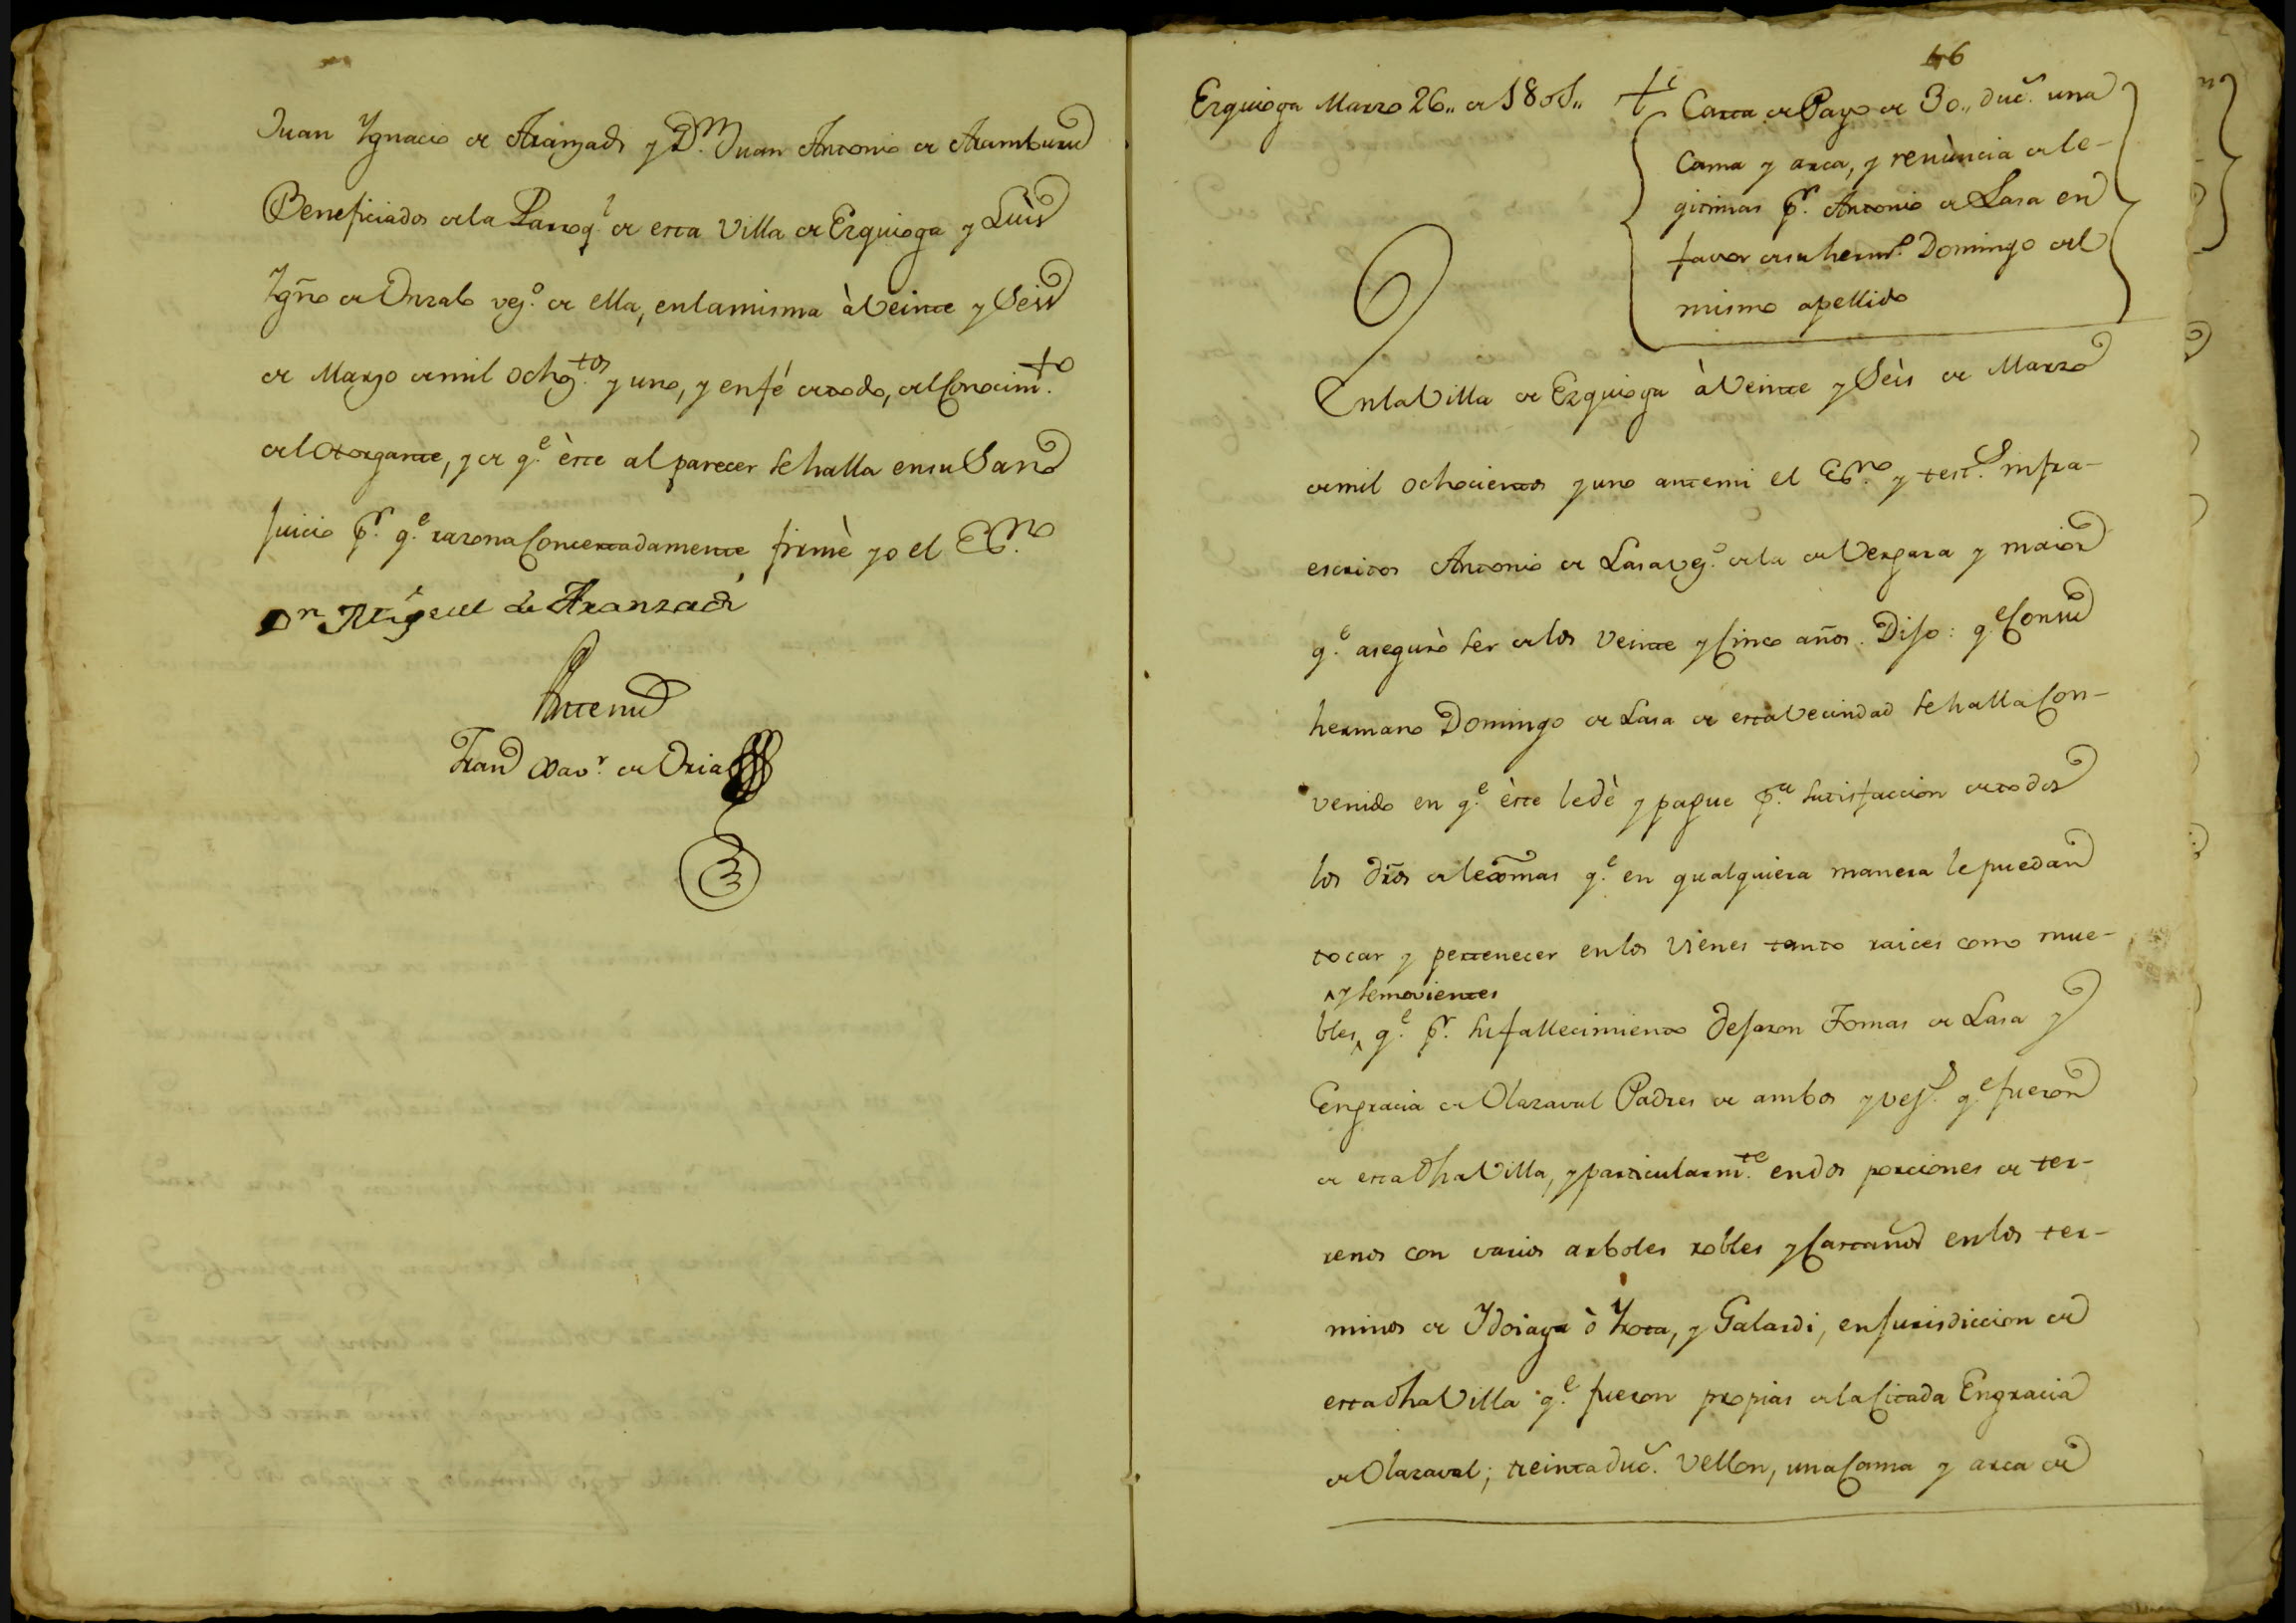 Juan Ygnacio de Aranzadi y Dn. Juan Antonio de Aramburu
Beneficiados de la Parroql. de esta Villa de Ezquioga y Luis
Ygño de Unzalo vezo. de ella, en la misma à Veinte y Seis
de Marzo de mil ochoztos. y uno, y en fé de todo, del Conocimto.
del Otorgante, y de qe. èste al parecer se halla en su Sano
Juicio pr. qe. razona Concertadamente firmè yo el Esno.
Dn Miguel de Aranzadi
Ante mi
Frano Xavr. de Oria
46
Ezquioga Marzo 26,, de 1801,,
Carta de Pago de 30,, duc. una
Cama y arca, y renùncia de le-
gitimas pr. Antonio de Lasa en
favor de su hermo. Domingo del
mismo apellido
En la Villa de Ezquioga à Veinte y Sèis de Marzo
de mil ochocientos y uno ante mi el Esno. y tests. infra-
escritos Antonio de Lasa vezo. de la de Vergara y maior
qe. asegurò ser de los Veinte y Cinco años. Dijo: qe Con su
hermano Domingo de Lasa de esta Vecindad se halla Con-
venido en qe. èste le dè y pague pa. satisfaccion de todos
los dros de lexmas qe. en qualquiera manera le puedan
tocar y pertenecer en los Vienes tanto raices como mue-
^y semovientes
bles^ qe. pr. su fallecimiento dejaron Tomas de Lasa y
Engracia de Olazaval Padres de ambos y vezs. qe fueron
de esta dha Villa, y particularmte. en dos porciones de ter-
renos con varios arboles robles y Castaños en los ter-
minos de Ydoiaga ò Yrota, y Galardi, en jurisdiccion de
esta dha Villa qe. fueron propias de la Citada Engracia
de Olazaval; treinta duc. Vellon, una Cama y arca de